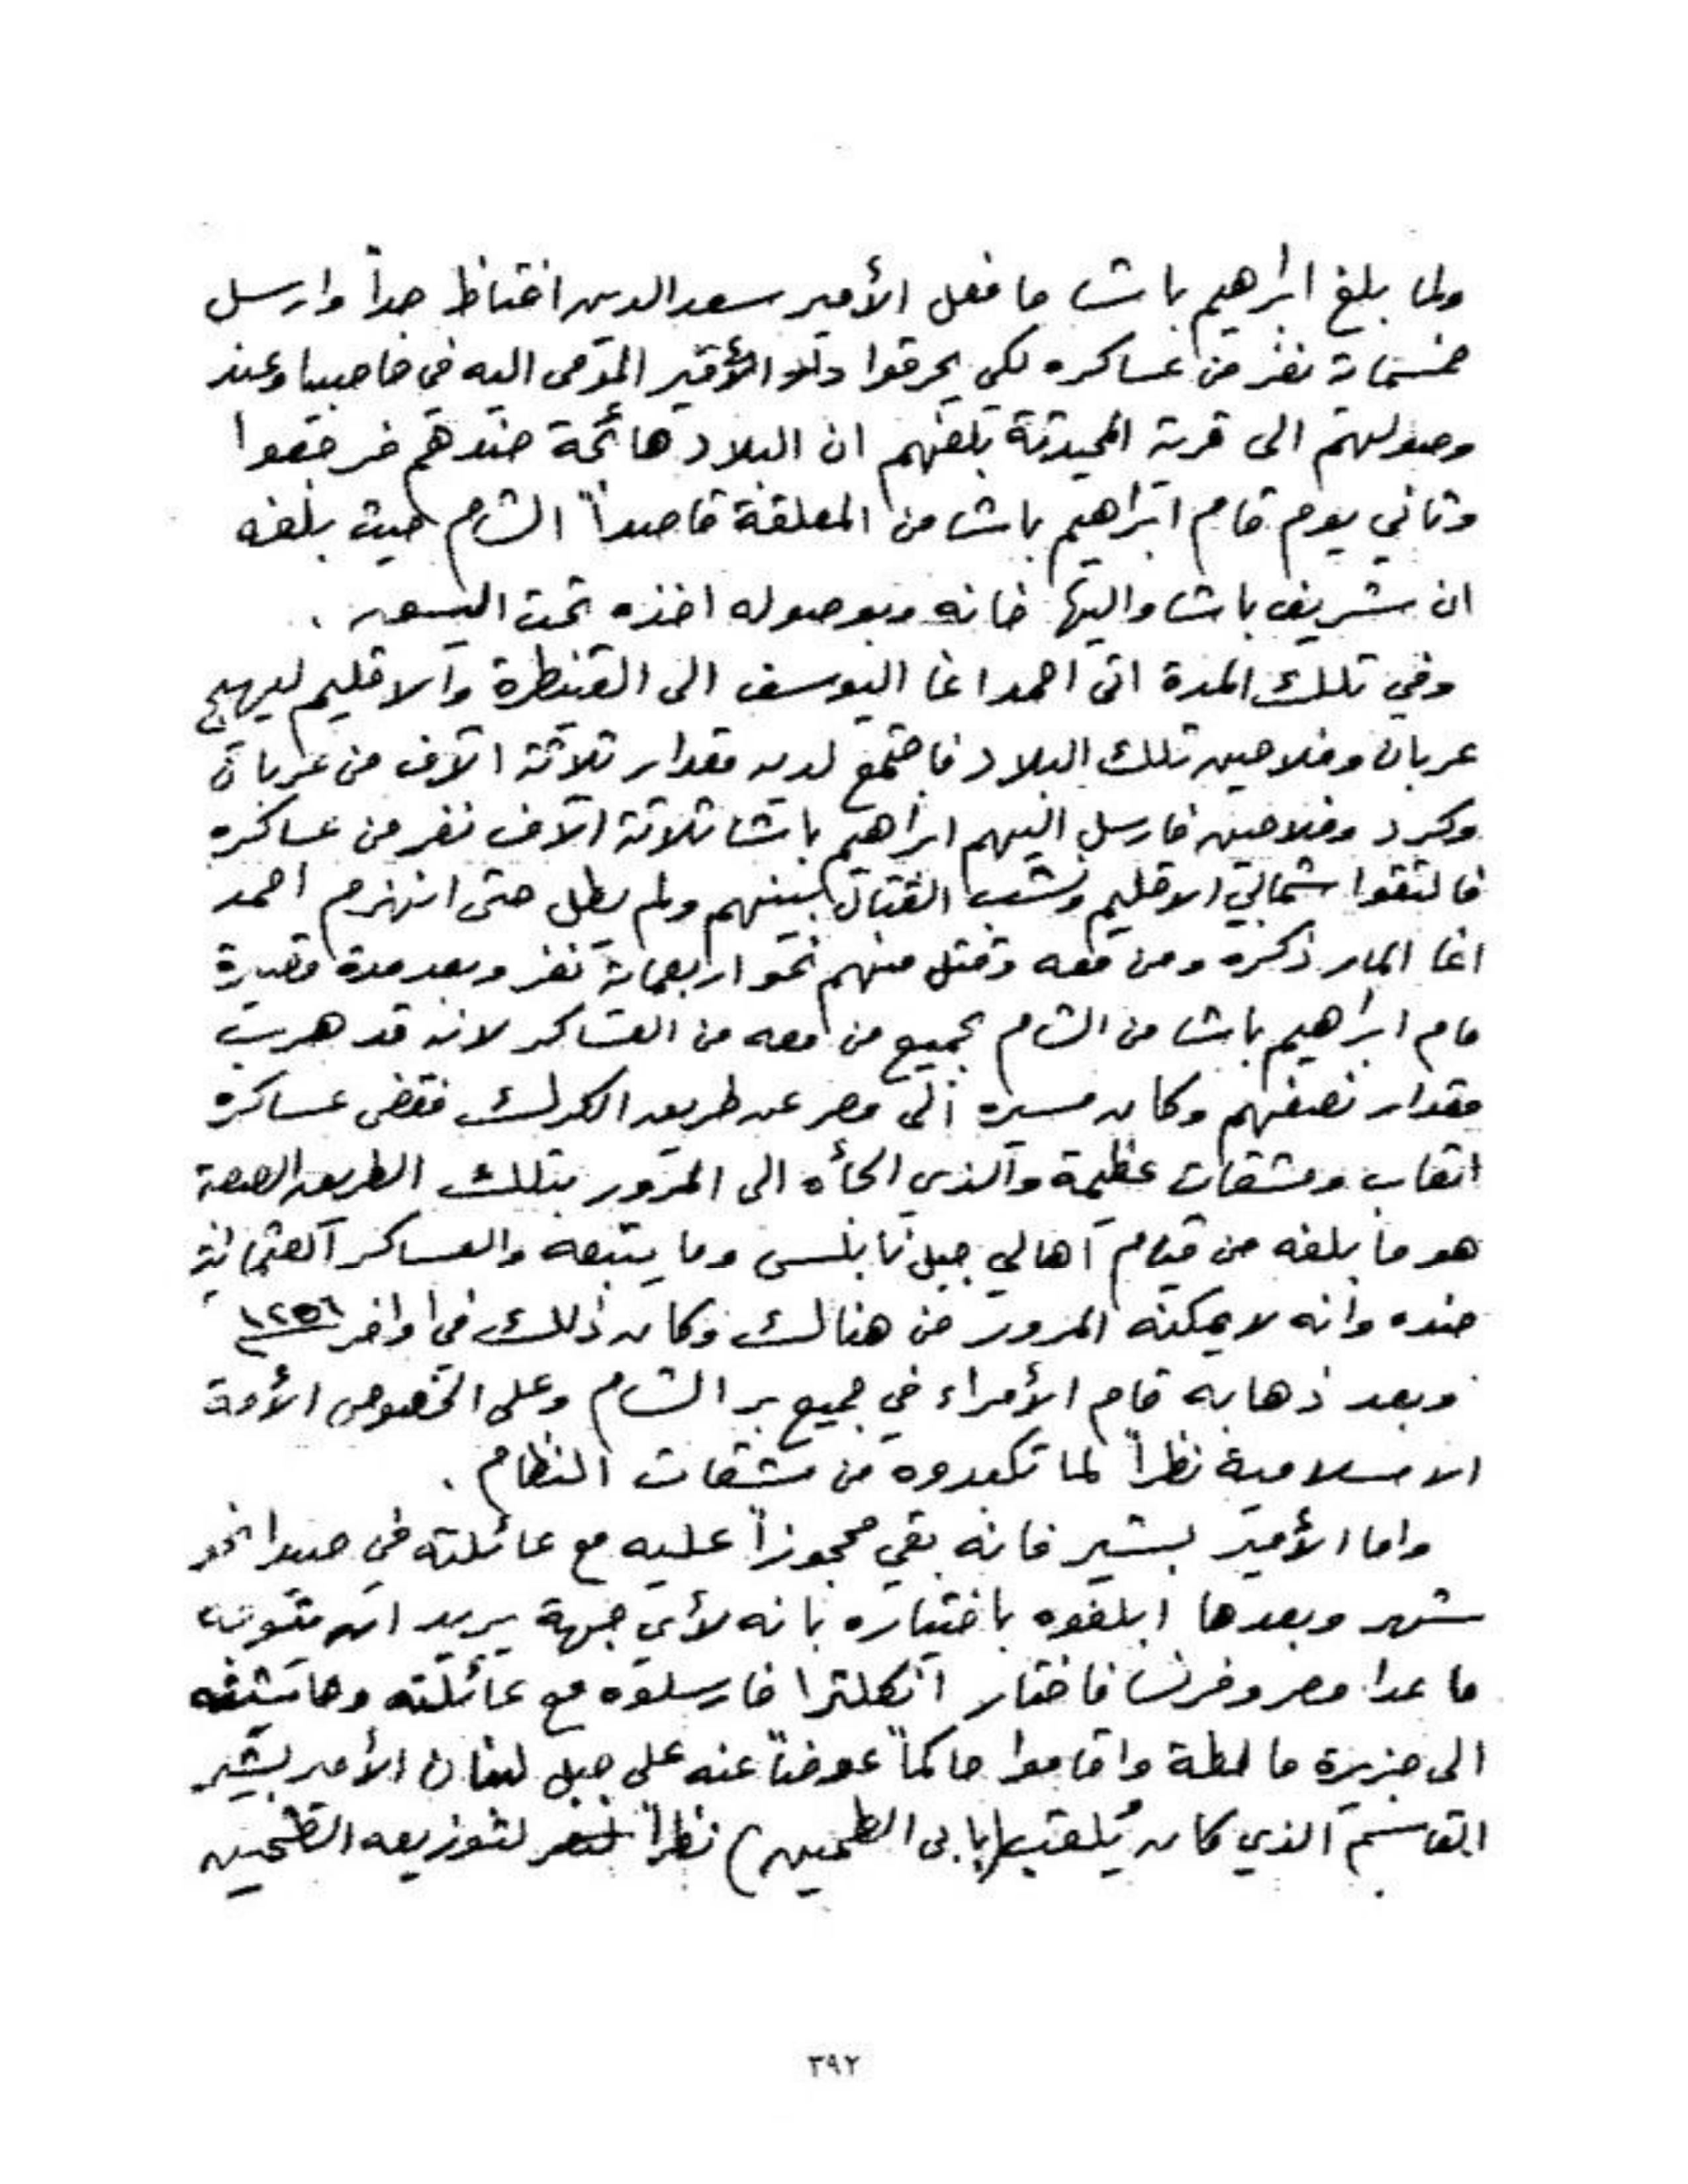 ولما بلغ ابراهيم باشا ما فعل الأمير سعد الدين اغتاظ جداً وارسل
خمسماية نفر من عساكره لكي يحرقوا دار الأمير المؤمى اليه في حاصبيا وعند
وصولهم الى قرية المحيدثة بلغهم ان البلاد هائجة ضدهم فرجعوا
وثاني يوم قام ابراهيم باشا من المعلقة قاصداً الشام حيث بلغه
ان شريف باشا واليها خانه وبوصوله اخذه تحت اليسق .
وفي تلك المدة اتى احمد اغا اليوسف الى القنيطرة والاقليم ليهيج
عربان وفلاحين تلك البلاد فاجتمع لديه مقدار ثلاثة الآف من عربان
وكرد وفلاحين فارسل اليهم ابراهيم باشا ثلاثة الآف نفر من عساكره
فالتقوا شمالي الاقليم ونشب القتال بينهم ولم يطل حتى انهزم احمد
اغا المار ذكره ومن معه وقتل منهم نحو اربعماية نفر وبعد مدة قصيرة
قام ابراهيم باشا من الشام بجميع من معه من العساكر لانه قد هرب
مقدار نصفهم وكان مسيره الى مصر عن طريق الكرك فقضى عساكره
اتعاب ومشقات عظيمة والذي الجأه الى المرور بتلك الطريق الصعبة
هو ما بلغه من قيام اهالي جبل نابلس وما يتبعه والعساكر العثمانية
ضده وانه لا يمكنه المرور من هنالك وكان ذلك في اواخر ١٢٥٦
وبعد ذهابه قام الأمراء في جميع بر الشام وعلى الخصوص الأمة
الاسلامية نظراً لما تكبدوه من مشقات النظام .
واما الأمير بشير فانه بقي محجوزاً عليه مع عائلته في صيدا نحو
شهر وبعدها ابلغوه باختياره بانه لأي جهة يريد ان يتوجه
ما عدا مصر وفرنسا فاختار انكلترا فارسلوه مع عائلته وحاشيته
الى جزيرة مالطة واقاموا حاكماً عوضاً عنه على جبل لبنان الأمير بشير
القاسم الذي كان يُلقب (بابي الطحين) نظراً لتوزيعه الطحين
٣٩٢